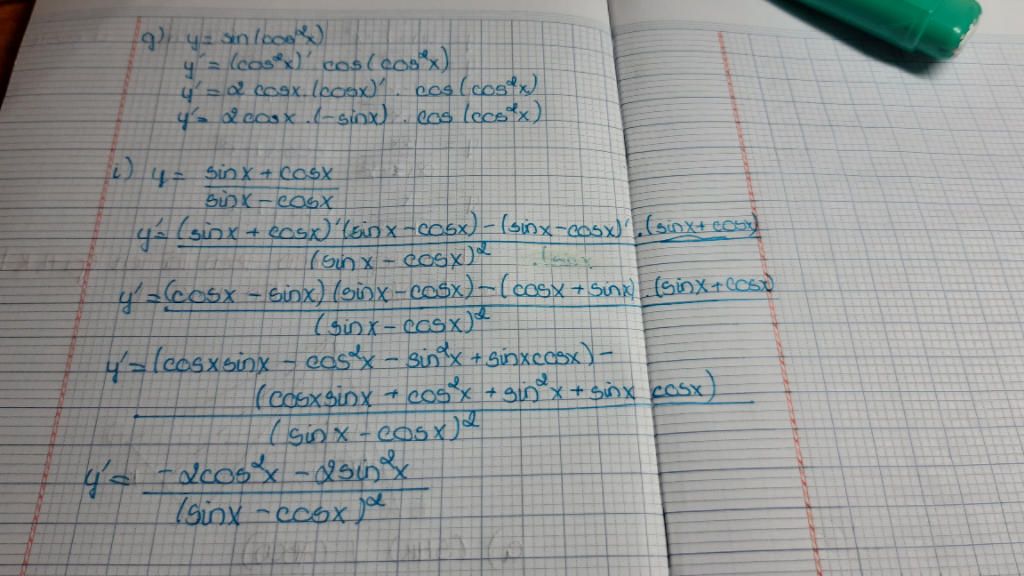 g) y = sin(cos²x)
y' = (cos²x)' cos(cos²x)
y' = 2 cosx . (cosx)' . cos(cos²x)
y' = 2cosx . (-sinx) . cos(cos²x)
i) y = sinx + cosx
sinx - cosx
y' = (sinx + cosx)' (sinx - cosx) - (sinx - cosx)' . (sinx + cosx)
(sinx - cosx)²
y' = (cosx - sinx) (sinx - cosx) - (cosx + sinx) . (sinx + cosx)
(sinx - cosx)²
y' = (cosxsinx - cos²x - sin²x + sinxcosx) -
(cosxsinx + cos²x + sin²x + sinx cosx)
(sinx - cosx)²
y' = -2cos²x - 2sin²x
(sinx - cosx)²